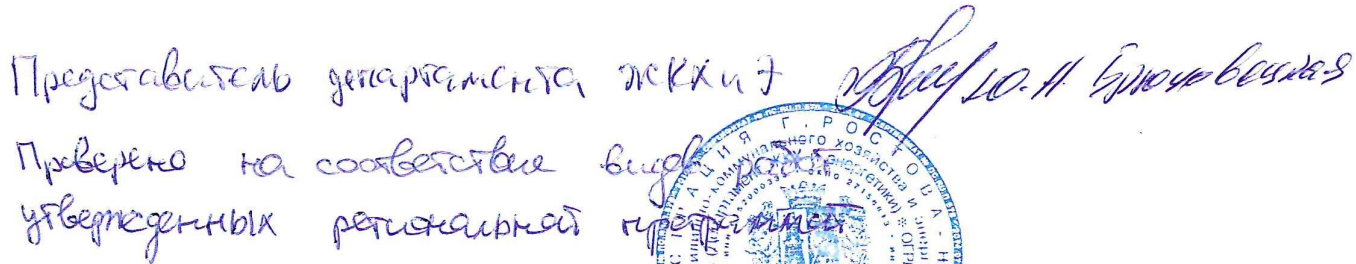 Представитель департамента ЖКХ и Э Ю.Н.
Проверено на соответствие видов работ
утвержденных региональной программой
Г. РОСТОВА-Н
коммунального хозяйства и энергетики